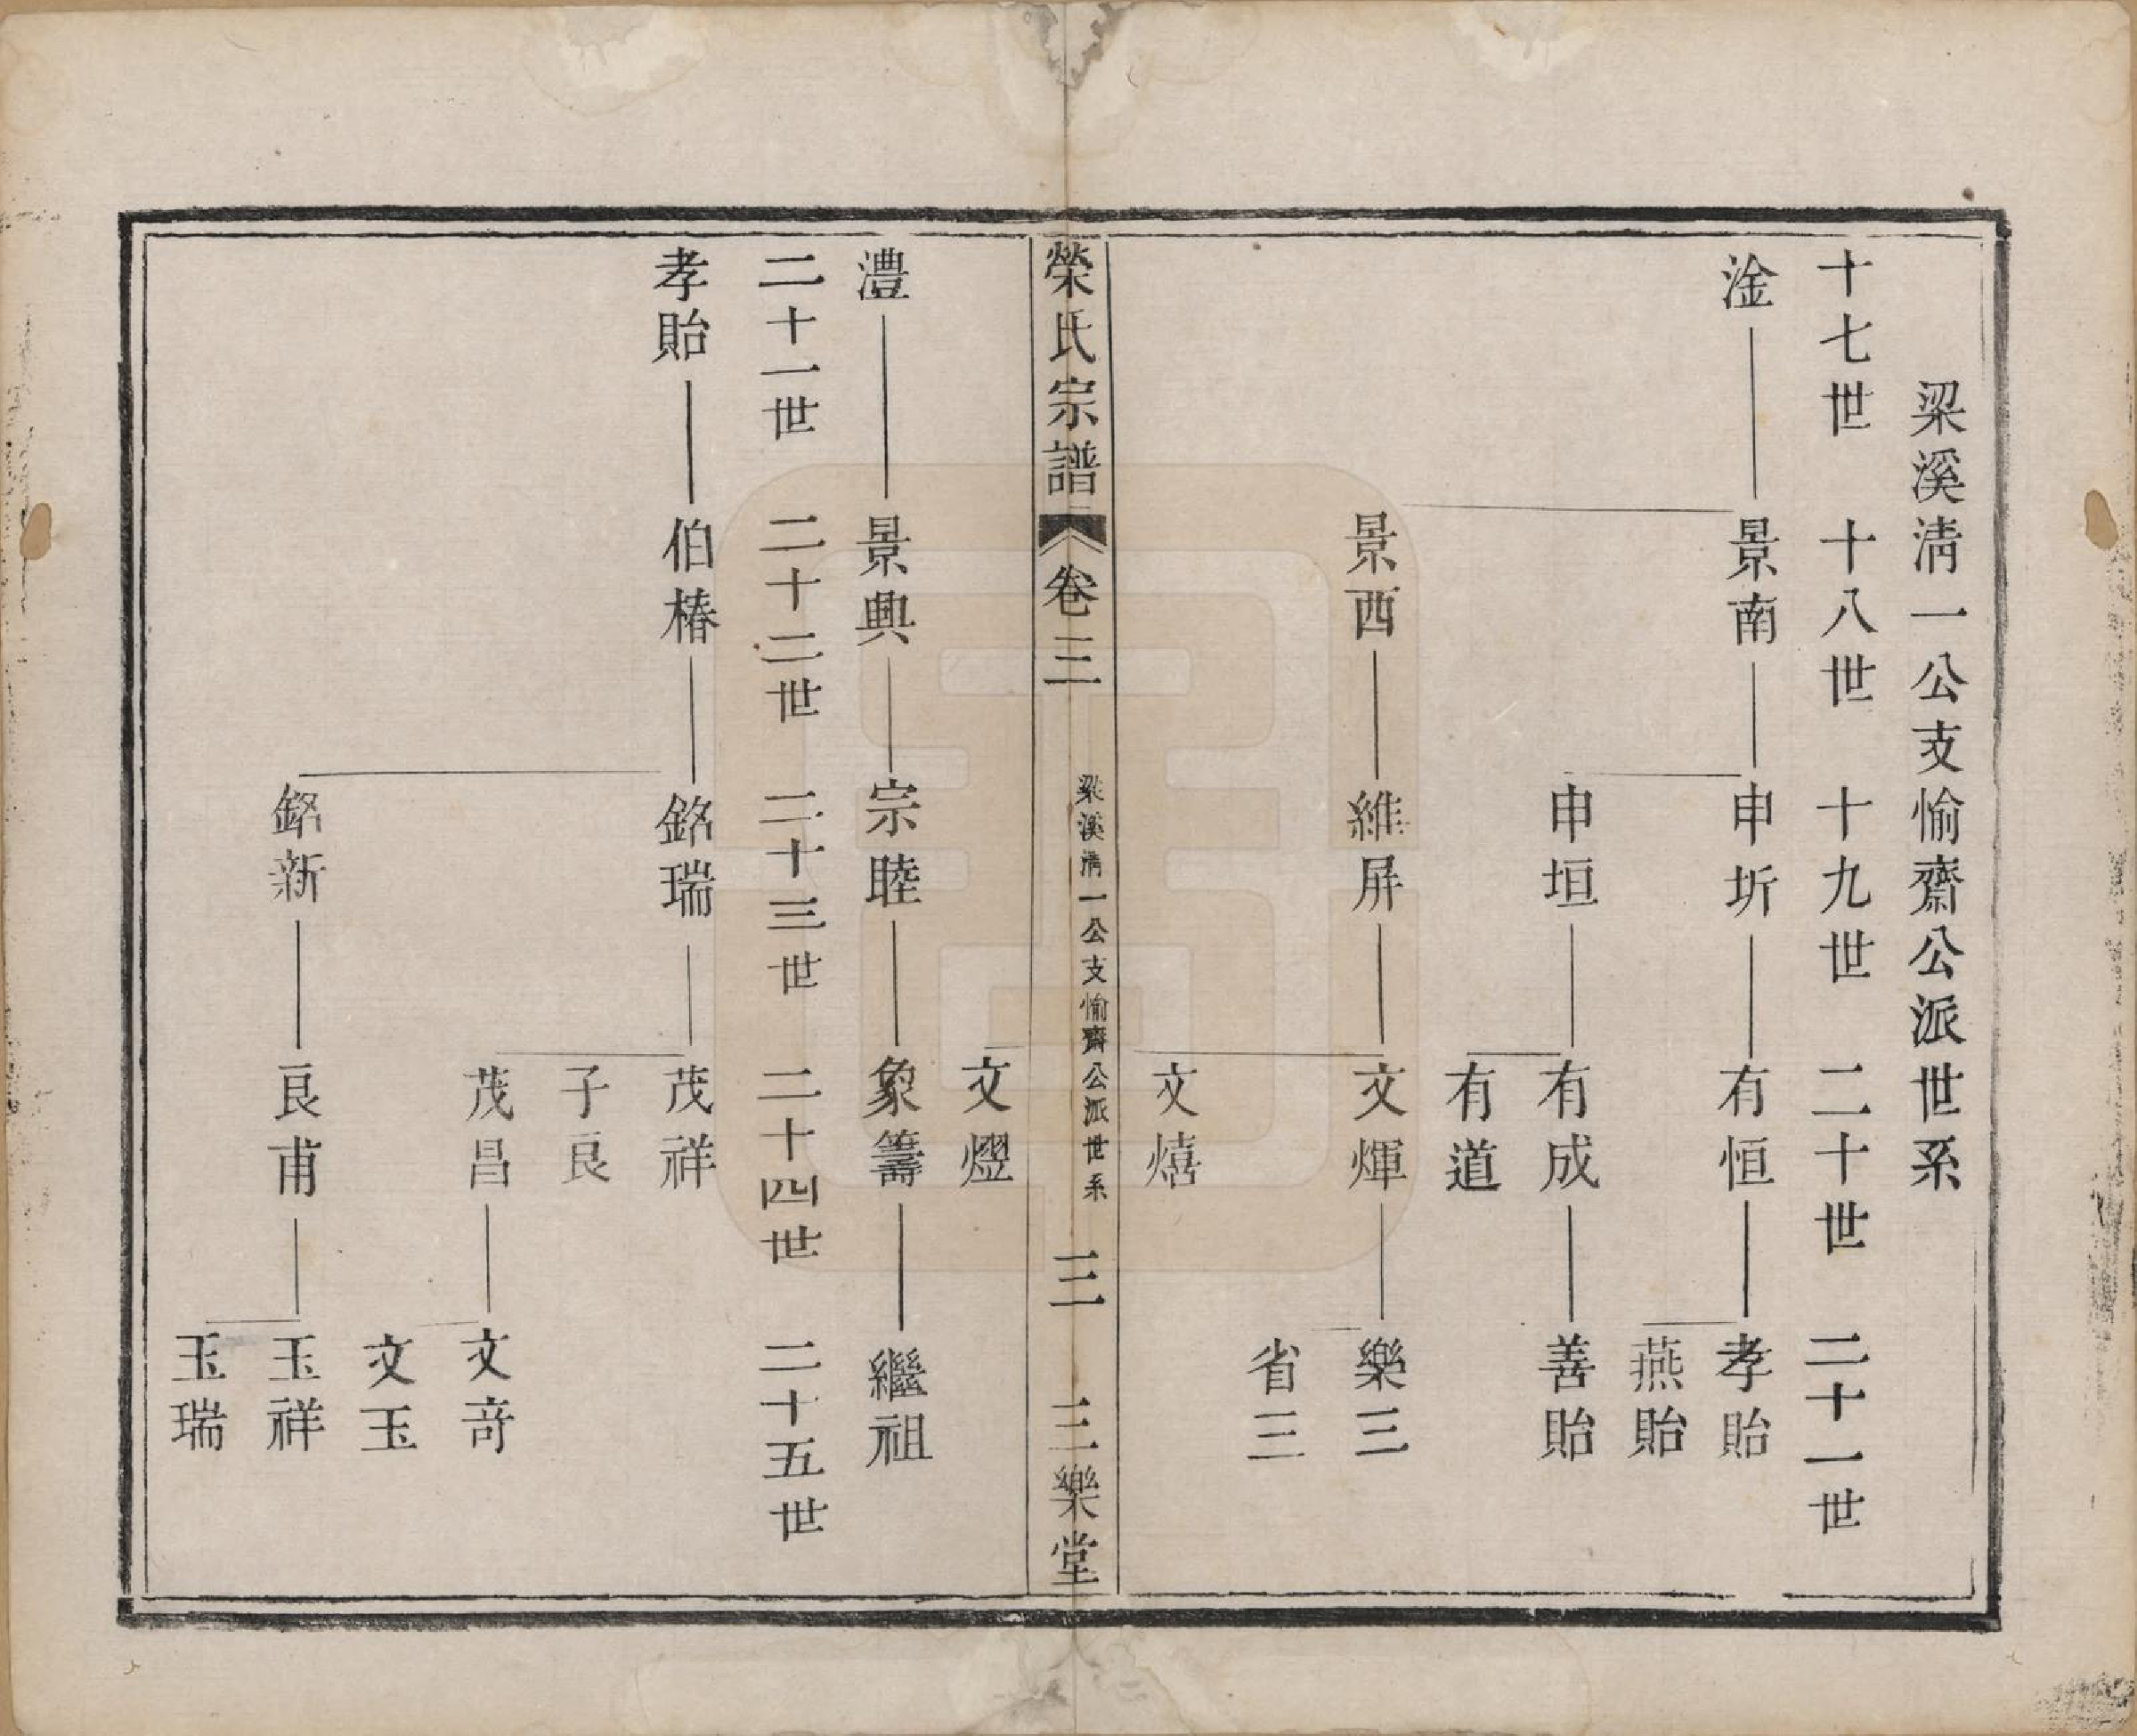 梁溪清一公支愉齋公派世系
十七世 十八世 十九世 二十世 二十一世
淦 景南 申圻 有恒 孝貽
燕貽
申垣 有成 善貽
有道
景西 維屏 文煇 樂三
省三
文熺
榮氏宗譜 卷三 梁溪清一公支愉齋公派世系 三 三樂堂
文熤
灃 景興 宗睦 象籌 繼祖
二十一世 二十二世 二十三世 二十四世 二十五世
孝貽 伯椿 銘瑞 茂祥
子良
茂昌 文奇
文玉
銘新 良甫 玉祥
玉瑞